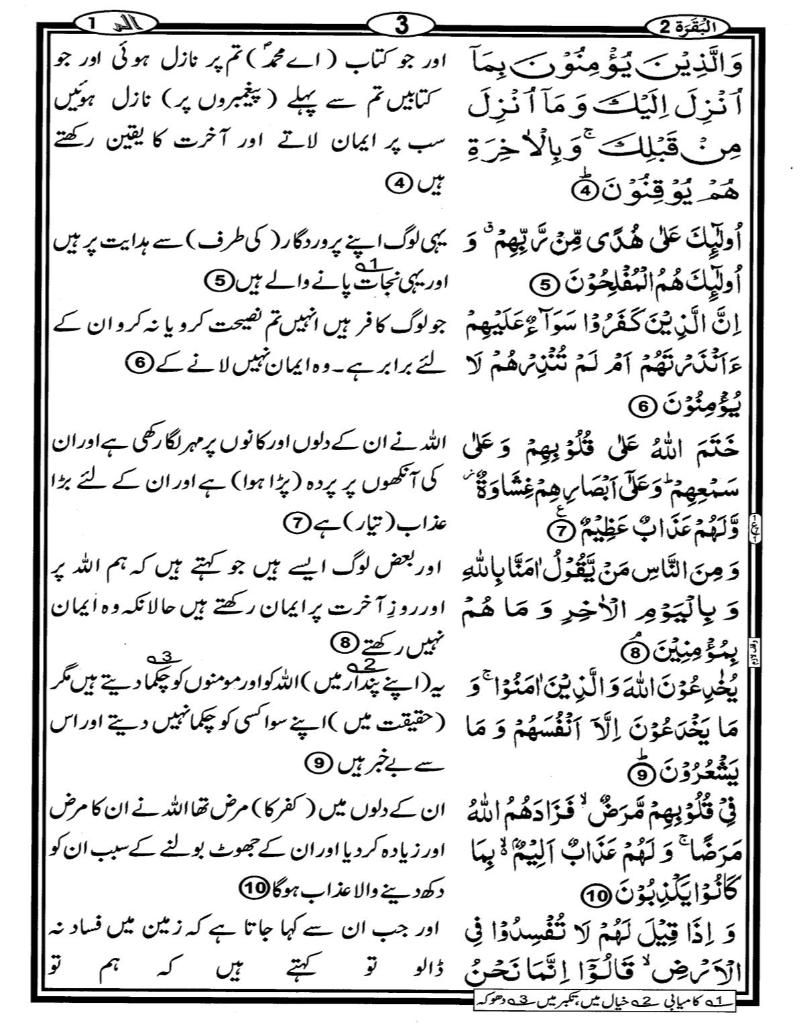 البقرة 2
3
الٓمّٓ 1
وَالَّذِيْنَ يُؤْمِنُوْنَ بِمَآ
اُنْزِلَ اِلَيْكَ وَ مَآ اُنْزِلَ
مِنْ قَبْلِكَ ۚ وَ بِالْاٰخِرَةِ
هُمْ يُوْقِنُوْنَ ؕ ④
اُولٰٓئِكَ عَلٰى هُدًى مِّنْ رَّبِّهِمْ ۗ وَ
اُولٰٓئِكَ هُمُ الْمُفْلِحُوْنَ ⑤
اِنَّ الَّذِيْنَ كَفَرُوْا سَوَآءٌ عَلَيْهِمْ
ءَاَنْذَرْتَهُمْ اَمْ لَمْ تُنْذِرْهُمْ لَا
يُؤْمِنُوْنَ ⑥
خَتَمَ اللّٰهُ عَلٰى قُلُوْبِهِمْ وَ عَلٰى
سَمْعِهِمْ ؕ وَ عَلٰٓى اَبْصَارِهِمْ غِشَاوَةٌ ز
وَّ لَهُمْ عَذَابٌ عَظِيْمٌ ع ⑦
وَ مِنَ النَّاسِ مَنْ يَّقُوْلُ اٰمَنَّا بِاللّٰهِ
وَ بِالْيَوْمِ الْاٰخِرِ وَ مَا هُمْ
بِمُؤْمِنِيْنَ ۘ ⑧
يُخٰدِعُوْنَ اللّٰهَ وَ الَّذِيْنَ اٰمَنُوْا ۚ وَ
مَا يَخْدَعُوْنَ اِلَّآ اَنْفُسَهُمْ وَ مَا
يَشْعُرُوْنَ ؕ ⑨
فِيْ قُلُوْبِهِمْ مَّرَضٌ ۙ فَزَادَهُمُ اللّٰهُ
مَرَضًا ۚ وَ لَهُمْ عَذَابٌ اَلِيْمٌ ۙ بِمَا
كَانُوْا يَكْذِبُوْنَ ⑩
وَ اِذَا قِيْلَ لَهُمْ لَا تُفْسِدُوْا فِي
الْاَرْضِ ۙ قَالُوْٓا اِنَّمَا نَحْنُ
اور جو کتاب (اے محمدؐ) تم پر نازل ہوئی اور جو
کتابیں تم سے پہلے (پیغمبروں پر) نازل ہوئیں
سب پر ایمان لاتے اور آخرت کا یقین رکھتے
ہیں ④
یہی لوگ اپنے پروردگار (کی طرف) سے ہدایت پر ہیں
اور یہی نجات1؎ پانے والے ہیں ⑤
جو لوگ کافر ہیں انہیں تم نصیحت کرو یا نہ کرو ان کے
لئے برابر ہے۔ وہ ایمان نہیں لانے کے ⑥
اللہ نے ان کے دلوں اور کانوں پر مہر لگا رکھی ہے اور ان
کی آنکھوں پر پردہ (پڑا ہوا) ہے اور ان کے لئے بڑا
عذاب (تیار) ہے ⑦
اور بعض لوگ ایسے ہیں جو کہتے ہیں کہ ہم اللہ پر
اور روزِ آخرت پر ایمان رکھتے ہیں حالانکہ وہ ایمان
نہیں رکھتے ⑧
یہ (اپنے پندار2؎ میں) اللہ کو اور مومنوں کو چکما3؎ دیتے ہیں مگر
(حقیقت میں) اپنے سوا کسی کو چکما نہیں دیتے اور اس
سے بے خبر ہیں ⑨
ان کے دلوں میں (کفر کا) مرض تھا اللہ نے ان کا مرض
اور زیادہ کر دیا اور ان کے جھوٹ بولنے کے سبب ان کو
دکھ دینے والا عذاب ہو گا ⑩
اور جب ان سے کہا جاتا ہے کہ زمین میں فساد نہ
ڈالو تو کہتے ہیں کہ ہم تو
وقف لازم
1؎ کامیابی 2؎ خیال میں، تکبر میں 3؎ دھوکہ